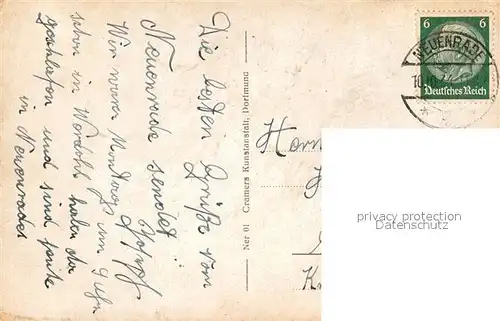 Die besten Grüße vom
Neuenrade sendet
Wir waren Montag um 5 Uhr
schon in Werdohl haben da
geschlafen und sind heute
in Neuenrade
Ner 01 Cramers Kunstanstalt, Dortmund
6 6
Deutsches Reich
NEUENRADE
privacy protection
Datenschutz